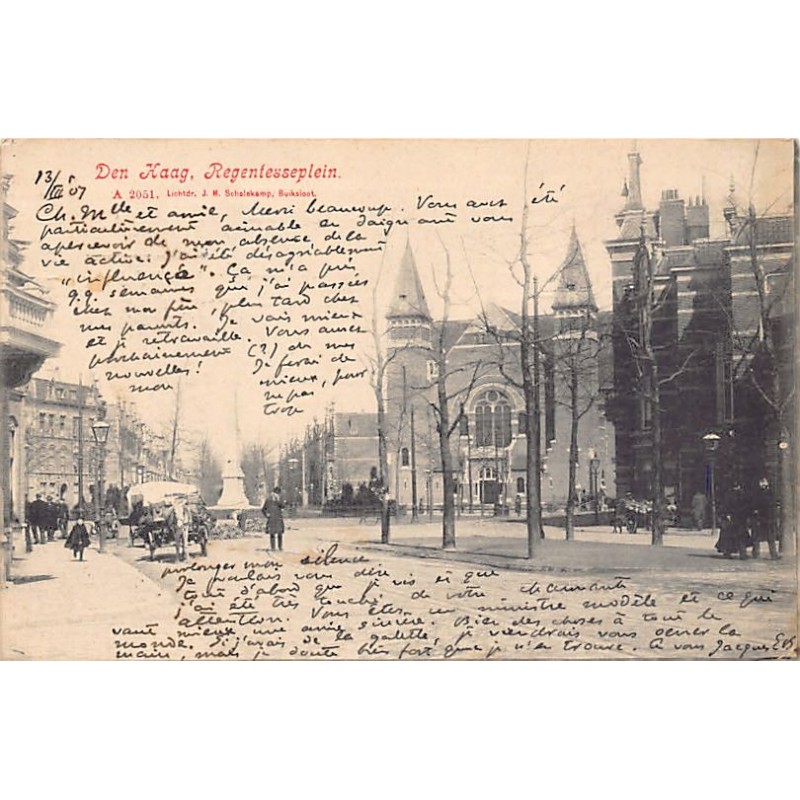 Den Haag, Regentesseplein.
A 2051. Lichtdr. J. H. Schalekamp, Buiksloot.
Ch. Mlle et amie, Merci beaucoup. Vous avez été
particulièrement aimable en daignant vous
apercevoir de mon absence de la
vie active. J'ai été désagréablement
"influencée". Ça m'a pris
99. semaines que j'ai passées
chez mon plus tard chez
mes parents. Je vais mieux
et je retravaille. Vous aurez
prochainement (?) de mes
nouvelles! Je ferai de
mon mieux, pour
ne pas
trop
prolonger mon silence
Je voulais vous dire
tout d'abord que je vis et que
j'ai été très touché de votre charmante
attention. Vous êtes un ministre modèle et ce qui
vaut mieux une amie sincère. Bien des choses à tout le
monde. Si j'avais de la galette, je viendrais vous serrer la
main, mais je doute bien fort que je n'en trouve. A vous Jacques